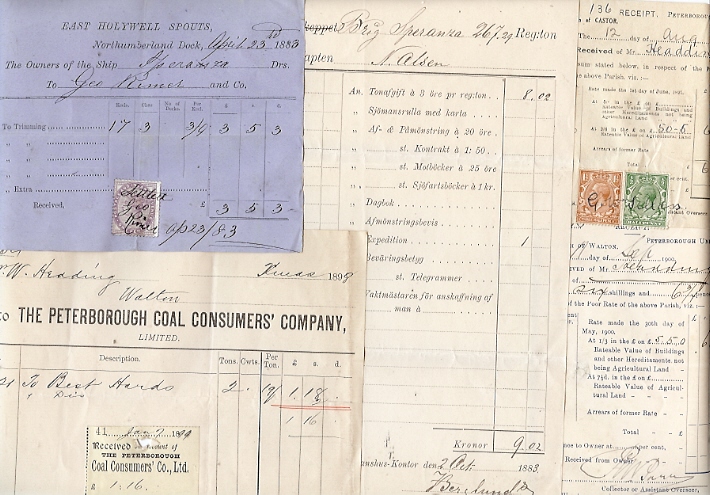 EAST HOLYWELL SPOUTS,
Northumberland Dock, April 23rd 1883
The Owners of the Ship Speranza Drs.
To Geo and Co.
Keels. Chns. No of Decks. Per Keel. £ s d
To Trimming 17 3 3/9 3 5 3
„
„
„
„ Extra
Received, £ 3 5 3
Settled
Geo
Ap 23/83
W. Heading Xmas 1898
Walton
to THE PETERBOROUGH COAL CONSUMERS' COMPANY,
LIMITED.
Description. Tons. Cwts. Per Ton. £ s. d.
To Best Hards 2 19/ 1.18.
Dis
1 16
41 Jany 7 1899
Received on Account of
THE PETERBOROUGH
Coal Consumers' Co., Ltd.
£ 1.16.
skeppet Brig Speranza 267.21 Reg:ton
apten N. Alsen
An. Tonafgift à 3 öre pr reg:ton. 8.02
„ Sjömansrulla med karta
„ Af- & Påmönstring à 20 öre
„ st. Kontrakt à 1: 50.
„ st. Motböcker à 25 öre
„ st. Sjöfartsböcker à 1 kr.
„ Dagbok
„ Afmönstringsbevis
Expedition 1
Beväringsbetyg
st. Telegrammer
Vaktmästaren för anskaffning af
man à
Kronor 9.02
anshus-Kontor den 2 Oct. 1883.
Berglund
136 RECEIPT. PETERBOROUGH
of CASTOR.
The 12 day of Aug
Received of Mr Headding
sum stated below, in respect of the
the above Parish, viz.:—
Rateable Value of Buildings
and other Hereditaments not
being Agricultural Land
Arrears of former Rate
Total
OF WALTON. PETERBOROUGH UN
day of 1900,
EIVED OF Mr Headding
shillings and
of the Poor Rate of the above Parish, viz.:
Rate made the 30th day of
May, 1900.
At 1/3 in the £ on £
Rateable Value of Buildings
and other Hereditaments, not
being Agricultural Land
At 7½d. in the £ on £
Rateable Value of Agricul-
tural Land - -
Arrears of former Rate -
Total - £
nce to Owner at per cent,
Received from Owner
Collector or Assistant Overseer.